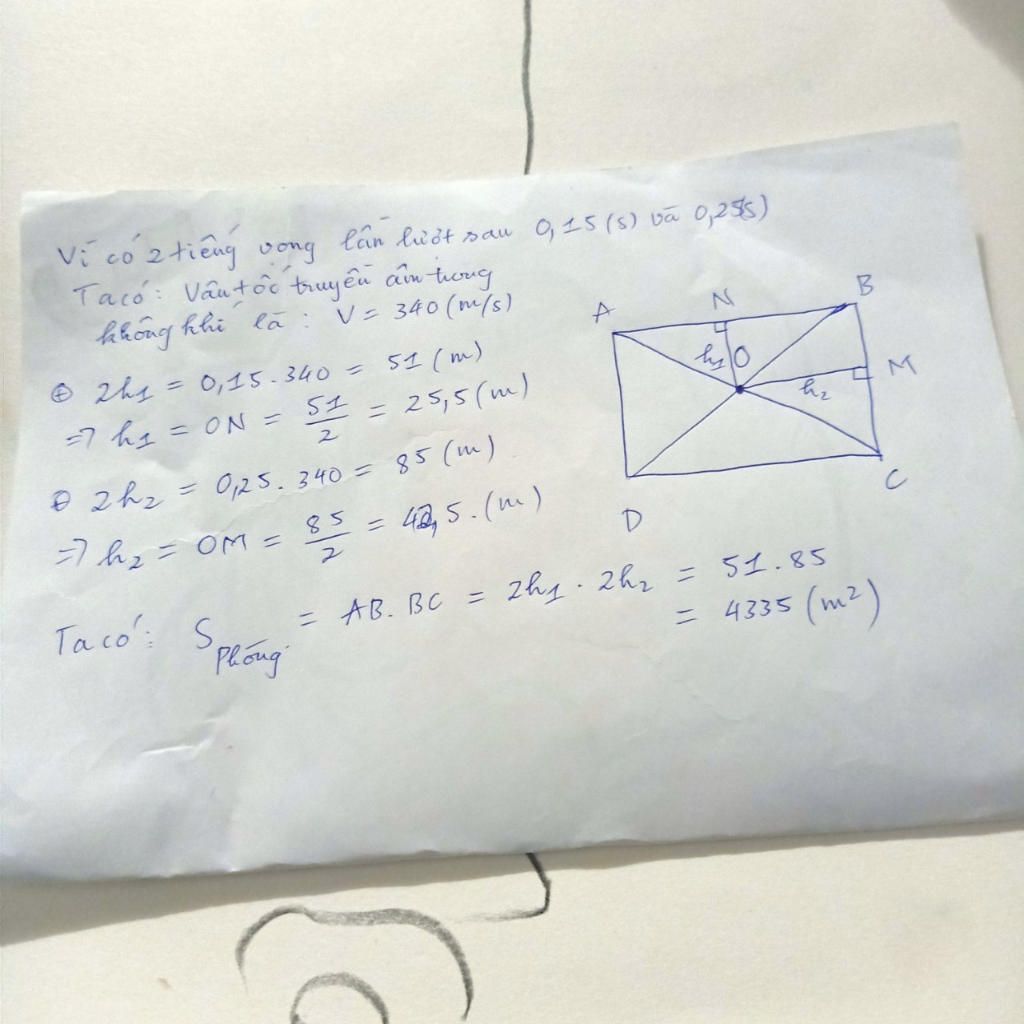 Vì có 2 tiếng vọng lần lượt sau 0,15 (s) và 0,25(s)
Ta có: Vận tốc truyền âm trong
không khí là : V = 340 (m/s)
⊕ 2h1 = 0,15 . 340 = 51 (m)
=> h1 = ON = 51/2 = 25,5 (m)
⊕ 2h2 = 0,25 . 340 = 85 (m)
=> h2 = OM = 85/2 = 42,5 . (m)
Ta có: S Phòng = AB . BC = 2h1 . 2h2 = 51 . 85
= 4335 (m²)
A N B
h1 O M
h2
D C